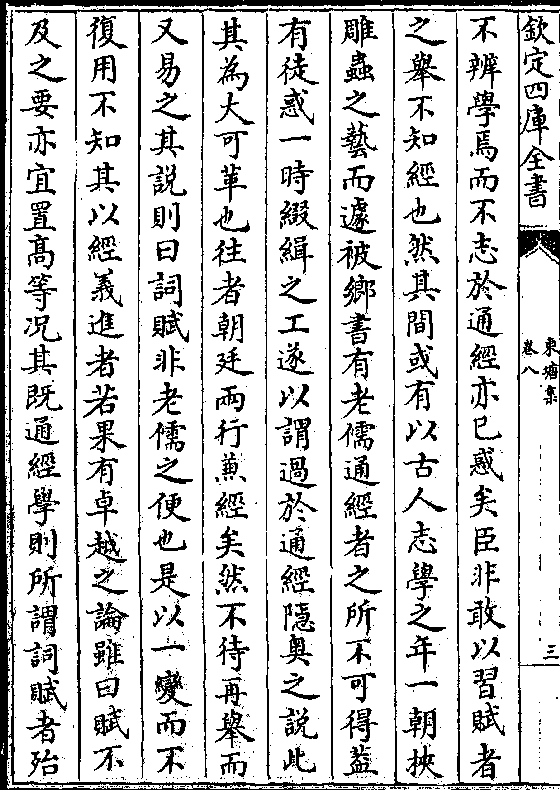 欽定四庫全書
東塘集
卷八
三
不辨學焉而不志於通經亦已惑矣臣非敢以習賦者
之舉不知經也然其間或有以古人志學之年一朝挾
雕蟲之藝而遽被鄉書有老儒通經者之所不可得蓋
有徒惑一時綴緝之工遂以謂過於通經隱奧之說此
其為大可革也往者朝廷兩行兼經矣然不待再舉而
又易之其說則曰詞賦非老儒之便也是以一變而不
復用不知其以經義進者若果有卓越之論雖曰賦不
及之要亦宜置髙等况其既通經學則所謂詞賦者殆